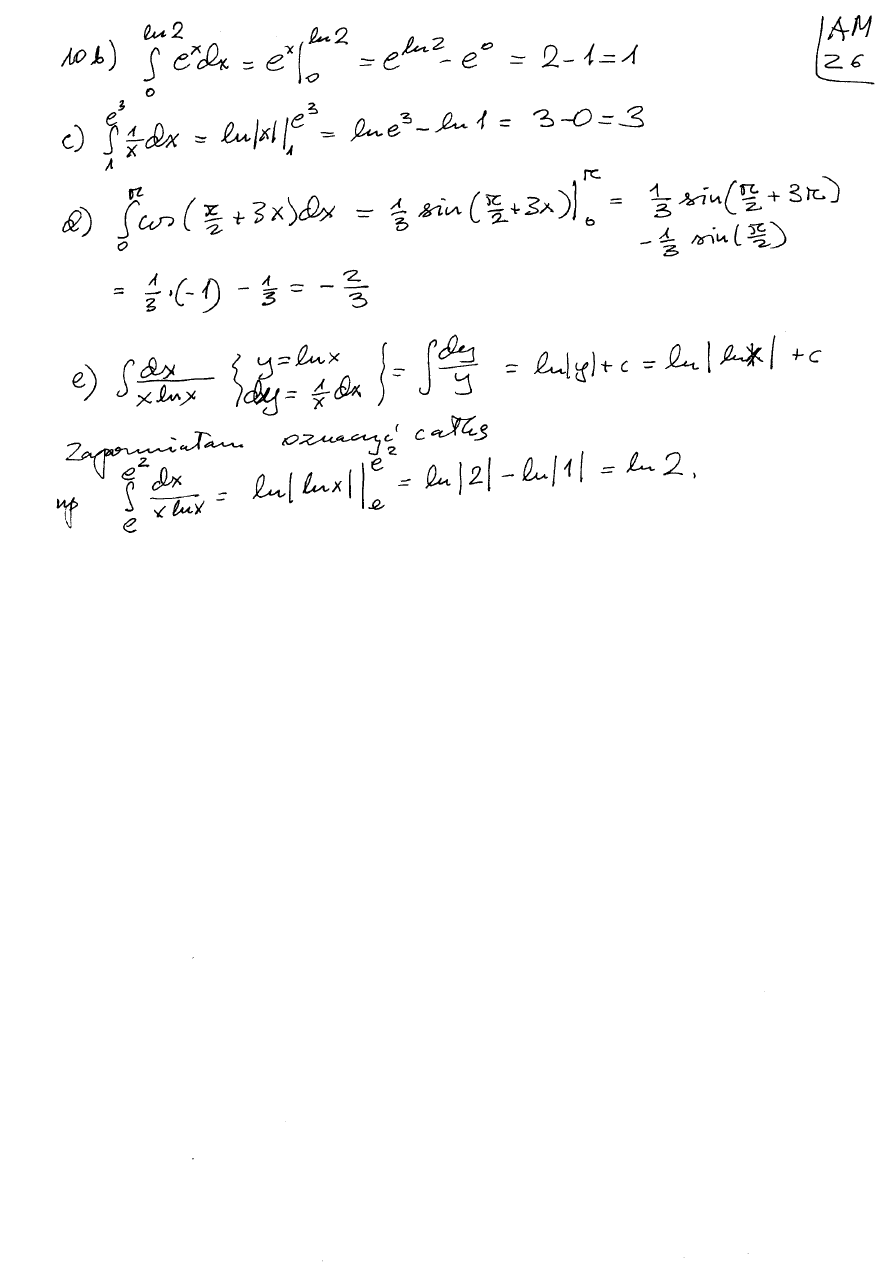 AM
26
10 b) ∫_0^{ln 2} e^x dx = e^x |_0^{ln 2} = e^{ln 2} - e^0 = 2 - 1 = 1
c) ∫_1^{e^3} 1/x dx = ln|x| |_1^{e^3} = ln e^3 - ln 1 = 3 - 0 = 3
d) ∫_0^π cos(π/2 + 3x) dx = 1/3 sin(π/2 + 3x) |_0^π = 1/3 sin(π/2 + 3π)
- 1/3 sin(π/2)
= 1/3 · (-1) - 1/3 = - 2/3
e) ∫ dx/(x ln x) { y = ln x
dy = 1/x dx } = ∫ dy/y = ln|y| + c = ln|ln x| + c
Zapomniałam oznaczyć całkę
np ∫_e^{e^2} dx/(x ln x) = ln|ln x| |_e^{e^2} = ln|2| - ln|1| = ln 2.